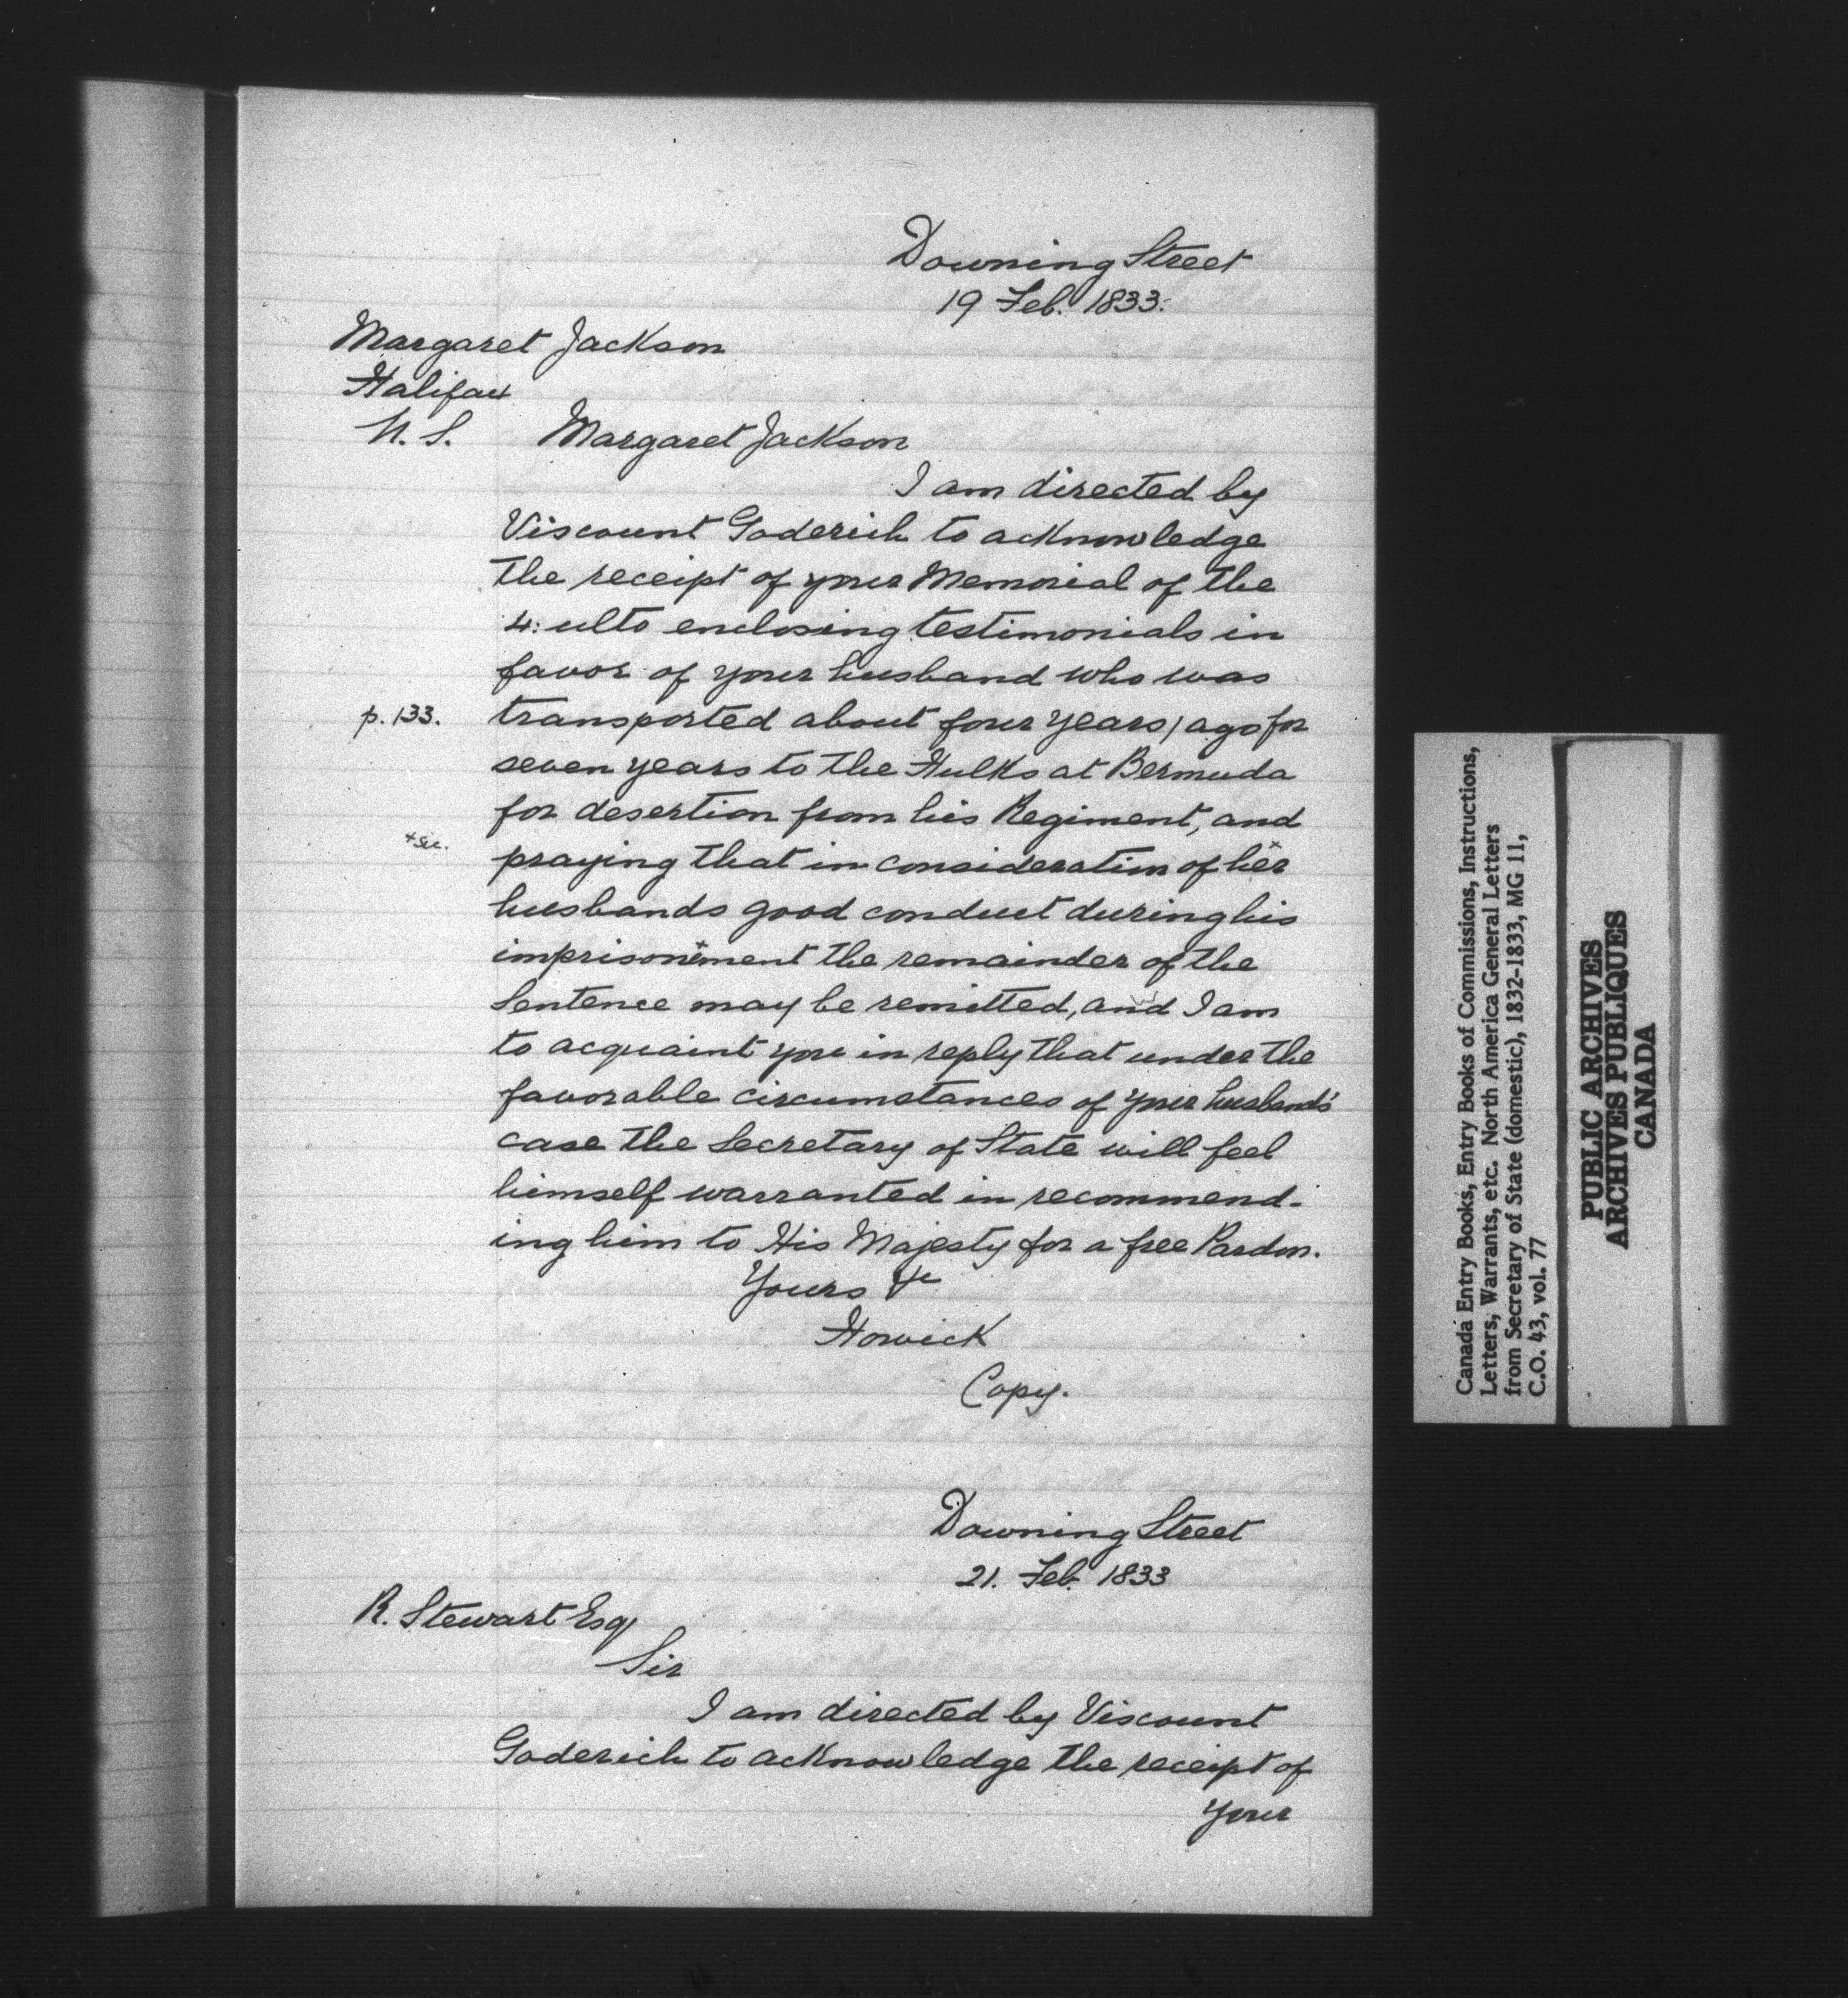 Downing Street
19 Feb. 1833.
Margaret Jackson
Halifax
N. S.
Margaret Jackson
I am directed by
Viscount Goderich to acknowledge
the receipt of your Memorial of the
4: ulto enclosing testimonials in
favor of your husband who was
p. 133.
transported about four years / ago for
seven years to the Hulks at Bermuda
for desertion from his Regiment, and
+ sic.
praying that in consideration of her+
husbands good conduct during his
imprisonement+ the remainder of the
Sentence may be remitted, and I am
to acquaint you in reply that under the
favorable circumstances of your husband's
case the Secretary of State will feel
himself warranted in recommend-
ing him to His Majesty for a free Pardon.
Yours &c
Howick
Copy.
Downing Street
21. Feb. 1833
R. Stewart Esq
Sir
I am directed by Viscount
Goderich to acknowledge the receipt of
your
Canada Entry Books, Entry Books of Commissions, Instructions,
Letters, Warrants, etc. North America General Letters
from Secretary of State (domestic), 1832-1833, MG 11,
C.O. 43, vol. 77
PUBLIC ARCHIVES
ARCHIVES PUBLIQUES
CANADA